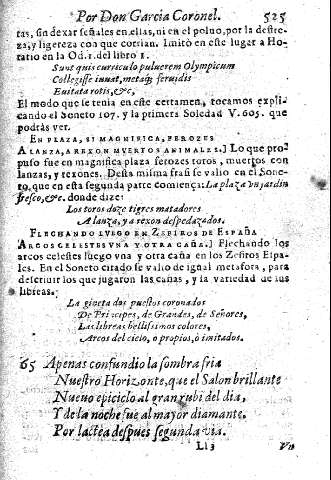 Por Don Garcia Coronel. 525
tas, sin dexar señales en ellas, ni en el poluo, por la destre-
za, y ligereza con que corrian. Imitò en este lugar a Ho-
ratio en la Od. 1. del libro 1.
Sunt quis curriculo puluerem Olympicum
Collegisse iuuat, metaq; feruidis
Euitata rotis, &c,
El modo que se tenia en este certamen, tocamos expli-
cando el Soneto 107. y la primera Soledad V. 605. que
podràs ver.
EN PLAZA, SI MAGNIFICA, FEROZES
A LANZA, A REXON MVERTOS ANIMALES.] Lo que pro-
puso fue en magnifica plaza ferozes toros, muertos con
lanzas, y rexones. Desta misma frasi se valio en el Sone-
to, que en esta segunda parte comiença: La plaza vn jardin
fresco, &c. donde dize:
Los toros doze tigres matadores
A lanza, y a rexon despedazados.
FLECHANDO LVEGO EN ZEFIROS DE ESPAÑA
ARCOS CELESTES VNA Y OTRA CAÑA.] Flechando los
arcos celestes luego vna y otra caña en los Zefiros Espa-
les. En el Soneto citado se valio de igual metafora, para
descriuir los que jugaron las cañas, y la variedad de sus
libreas.
La gineta dos puestos coronados
De Principes, de Grandes, de Señores,
Las libreas bellissimos colores,
Arcos del cielo, o propios, ò imitados.
65 Apenas confundio la sombra fria
Nuestro Horizonte, que el Salon brillante
Nueuo epiciclo al gran rubi del dia,
Y de la noche fue al mayor diamante.
Por lactea despues segunda via.
Ll 3 Vn